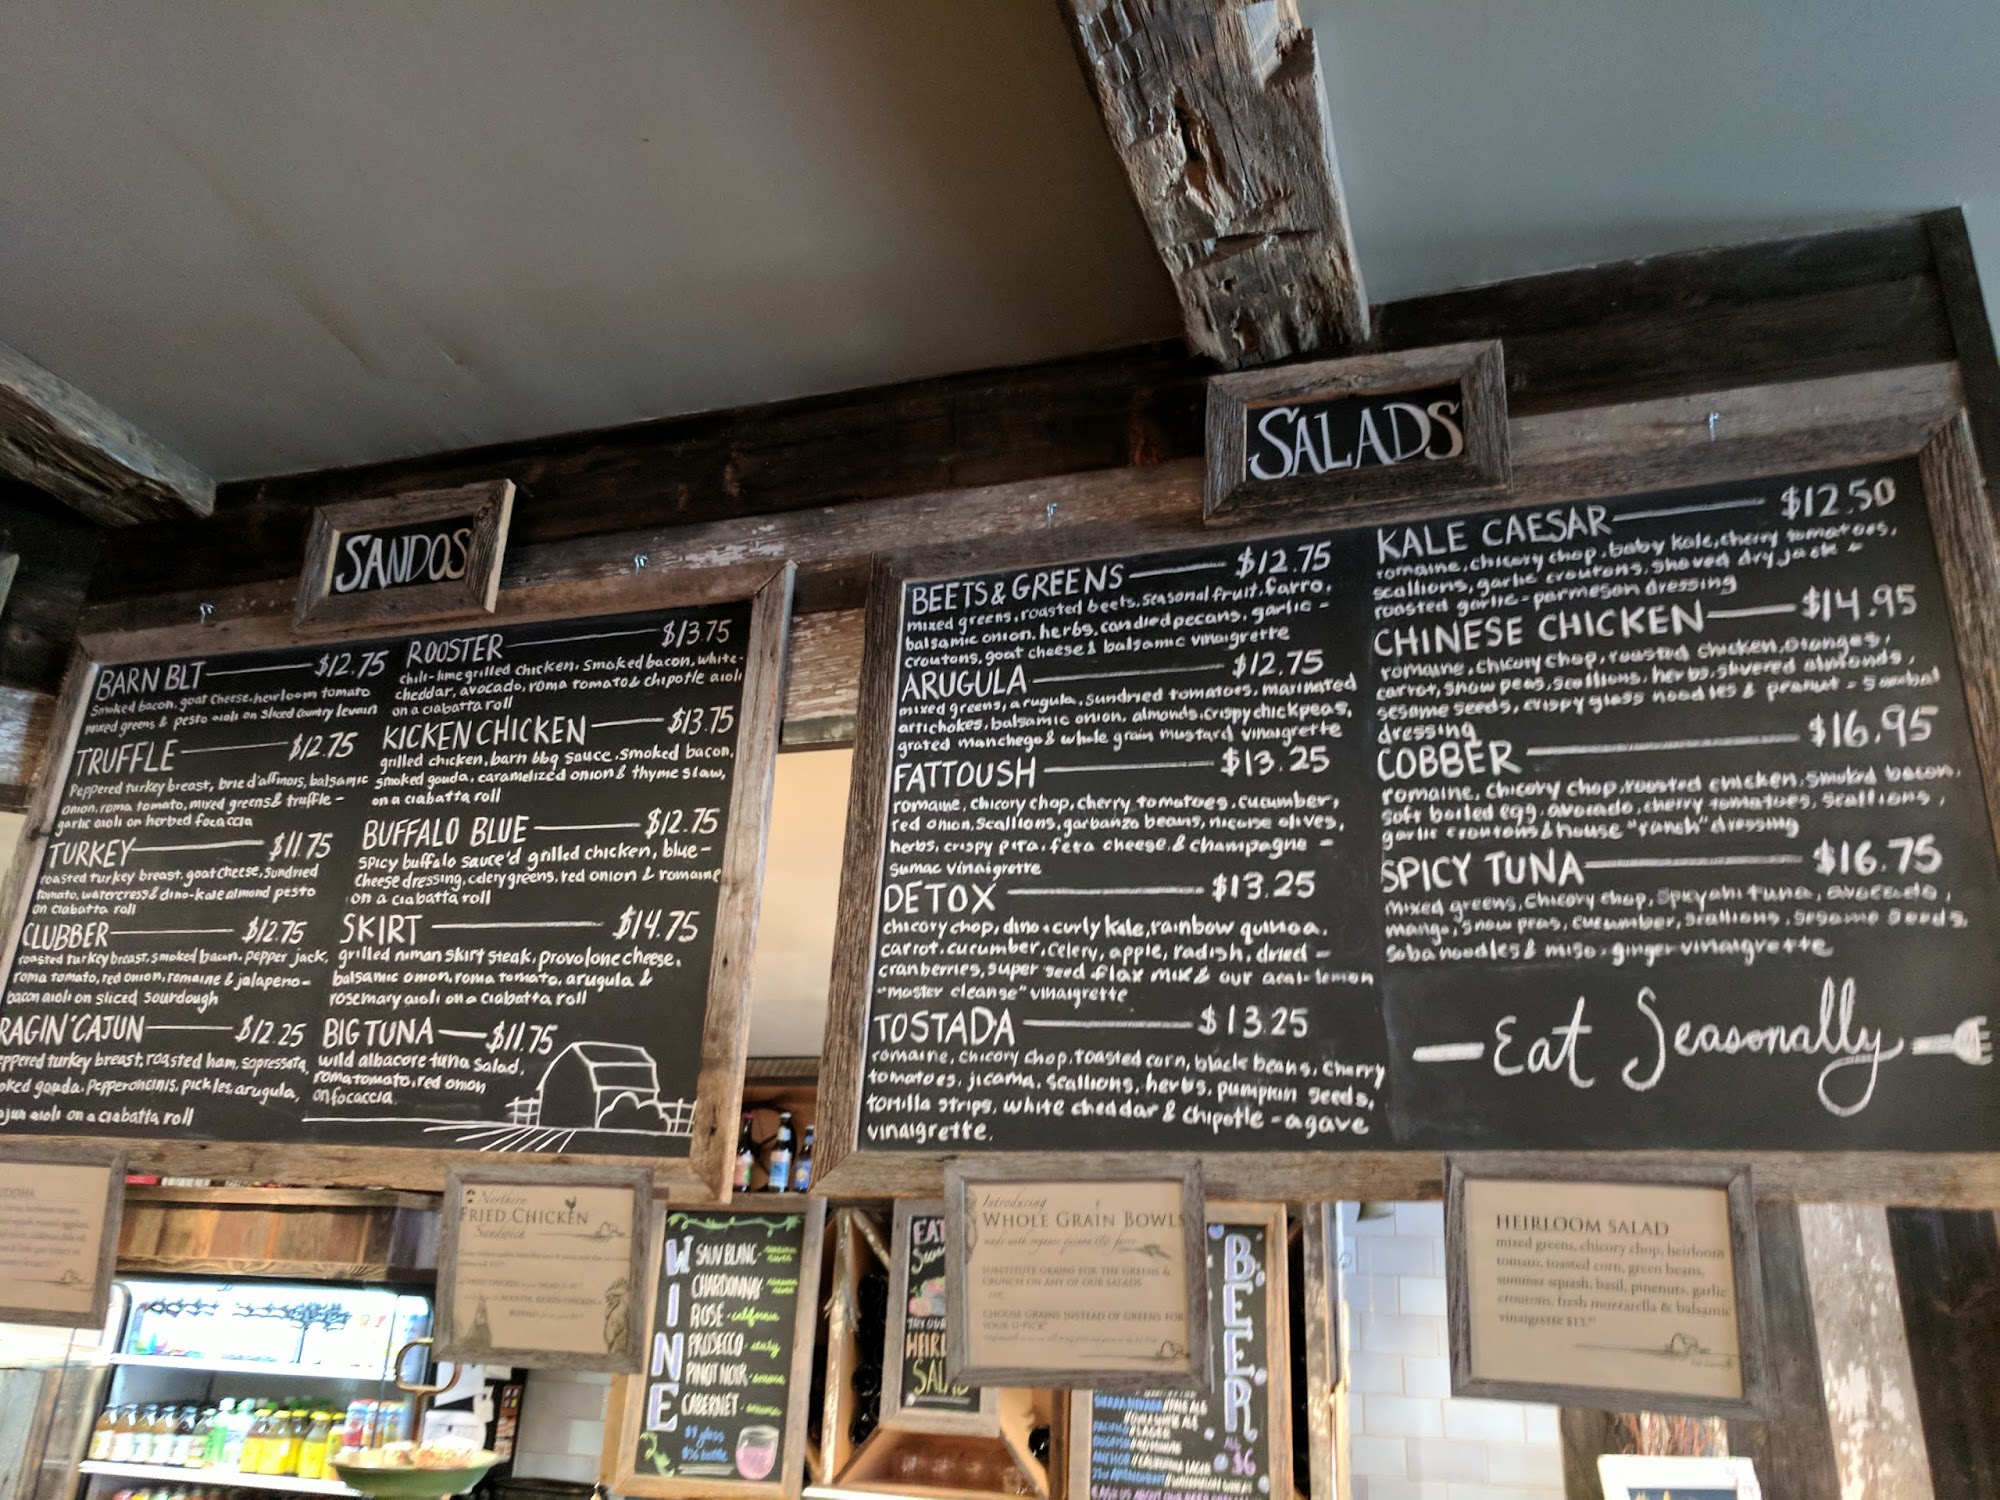 SANDOS
BARN BLT $12.75
Smoked bacon, goat cheese, heirloom tomato
mixed greens & pesto aioli on sliced country levain
TRUFFLE $12.75
Peppered turkey breast, brie d'affinois, balsamic
onion, roma tomato, mixed greens & truffle-
garlic aioli on herbed focaccia
TURKEY $11.75
roasted turkey breast, goat cheese, sundried
tomato, watercress & dino-kale almond pesto
on ciabatta roll
CLUBBER $12.75
roasted turkey breast, smoked bacon, pepper jack,
roma tomato, red onion, romaine & jalapeno-
bacon aioli on sliced sourdough
RAGIN' CAJUN $12.25
turkey breast, roasted ham, sopressata,
gouda, pepperoncinis, pickles, arugula,
aioli on a ciabatta roll
ROOSTER $13.75
chili-lime grilled chicken, smoked bacon, white-
cheddar, avocado, roma tomato & chipotle aioli
on a ciabatta roll
KICKEN CHICKEN $13.75
grilled chicken, barn bbq sauce, smoked bacon,
smoked gouda, caramelized onion & thyme slaw,
on a ciabatta roll
BUFFALO BLUE $12.75
spicy buffalo sauce'd grilled chicken, blue-
cheese dressing, celery greens, red onion & romaine
on a ciabatta roll
SKIRT $14.75
grilled niman skirt steak, provolone cheese,
balsamic onion, roma tomato, arugula &
rosemary aioli on a ciabatta roll
BIG TUNA $11.75
wild albacore tuna salad,
roma tomato, red onion
on focaccia
SALADS
BEETS & GREENS $12.75
mixed greens, roasted beets, seasonal fruit, farro,
balsamic onion, herbs, candied pecans, garlic-
croutons, goat cheese & balsamic vinaigrette
ARUGULA $12.75
mixed greens, arugula, sundried tomatoes, marinated
artichokes, balsamic onion, almonds, crispy chickpeas,
grated manchego & whole grain mustard vinaigrette
FATTOUSH $13.25
romaine, chicory chop, cherry tomatoes, cucumber,
red onion, scallions, garbanzo beans, nicoise olives,
herbs, crispy pita, feta cheese & champagne-
sumac vinaigrette
DETOX $13.25
chicory chop, dino + curly kale, rainbow quinoa,
carrot, cucumber, celery, apple, radish, dried-
cranberries, super seed flax mix & our acai-lemon
"master cleanse" vinaigrette
TOSTADA $13.25
romaine, chicory chop, toasted corn, black beans, cherry
tomatoes, jicama, scallions, herbs, pumpkin seeds,
tortilla strips, white cheddar & chipotle-agave
vinaigrette.
KALE CAESAR $12.50
romaine, chicory chop, baby kale, cherry tomatoes,
scallions, garlic croutons, shaved dry jack +
roasted garlic-parmesan dressing
CHINESE CHICKEN $14.95
romaine, chicory chop, roasted chicken, oranges,
carrot, snow peas, scallions, herbs, slivered almonds,
sesame seeds, crispy glass noodles & peanut-sambal
dressing
COBBER $16.95
romaine, chicory chop, roasted chicken, smoked bacon,
soft boiled egg, avocado, cherry tomatoes, scallions,
garlic croutons & house "ranch" dressing
SPICY TUNA $16.75
mixed greens, chicory chop, spicy ahi tuna, avocado,
mango, snow peas, cucumber, scallions, sesame seeds,
soba noodles & miso-ginger vinaigrette
Eat Seasonally
Northern
FRIED CHICKEN
Sandwich
WINE
SAUV BLANC
CHARDONNAY
ROSE - california
PROSECCO - italy
PINOT NOIR
CABERNET
$9 glass
$36 bottle
EAT
TRY OUR
HEIRL
SALAD
Introducing
WHOLE GRAIN BOWLS
SUBSTITUTE GRAINS FOR THE GREENS &
CRUNCH ON ANY OF OUR SALADS
CHOOSE GRAINS INSTEAD OF GREENS FOR
YOUR U-PICK
BEER
$6
HEIRLOOM SALAD
mixed greens, chicory chop, heirloom
tomato, toasted corn, green beans,
summer squash, basil, pinenuts, garlic
croutons, fresh mozzarella & balsamic
vinaigrette $13.